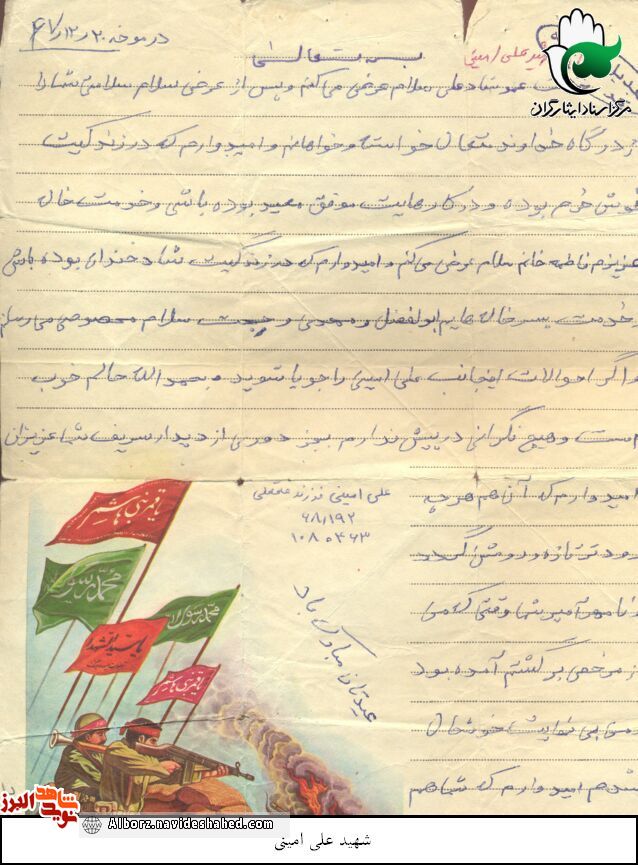 در مورخه ۲۰ر۱۲ر۶۱
بسمه تعالی
شهید علی امینی
مرکز اسناد ایثارگران
خدمت عمو شاد علی سلام عرض می کنم و پس از عرض سلام سلامتی شما را
از درگاه خداوند متعال خواسته و خواهانم و امیدوارم که در زندگیت
خوش خرم بوده و در کارهایت موفق معید بوده باشی و خدمت خاله
عزیزم فاطمه خانم سلام عرض می کنم و امیدوارم که در زندگیت شاد خندان بوده باشی
خدمت پسر خاله هایم ابولفضل و مهدی و حجت سلام مخصوصی می رسانم
و اگر احوالات اینجانب علی امینی را جویا شوید بحمد الله حالم خوب
است و هیچ نگرانی در پیش ندارم بجز دوری از دیدار شریف شما عزیزان
امیدوارم که آن هم هر چه
زودتر تازه و روشن گردد
و نامه پر مهرتان وقتی که من
از مرخصی برگشتم آمده بود
و من بی نهایت خوشحال
شدم امیدوارم که شما هم
علی امینی فرزند
۶۸٫۱۹۲
۱۰۸۰۴۶۳
عیدتان مبارک باد
یا قمر بنی هاشم
محمد رسول
محمد رسول الله
یا سید الشهدا
یا قمر بنی هاشم
نوید شاهد البرز
Alborz.navideshahed.com
شهید علی امینی